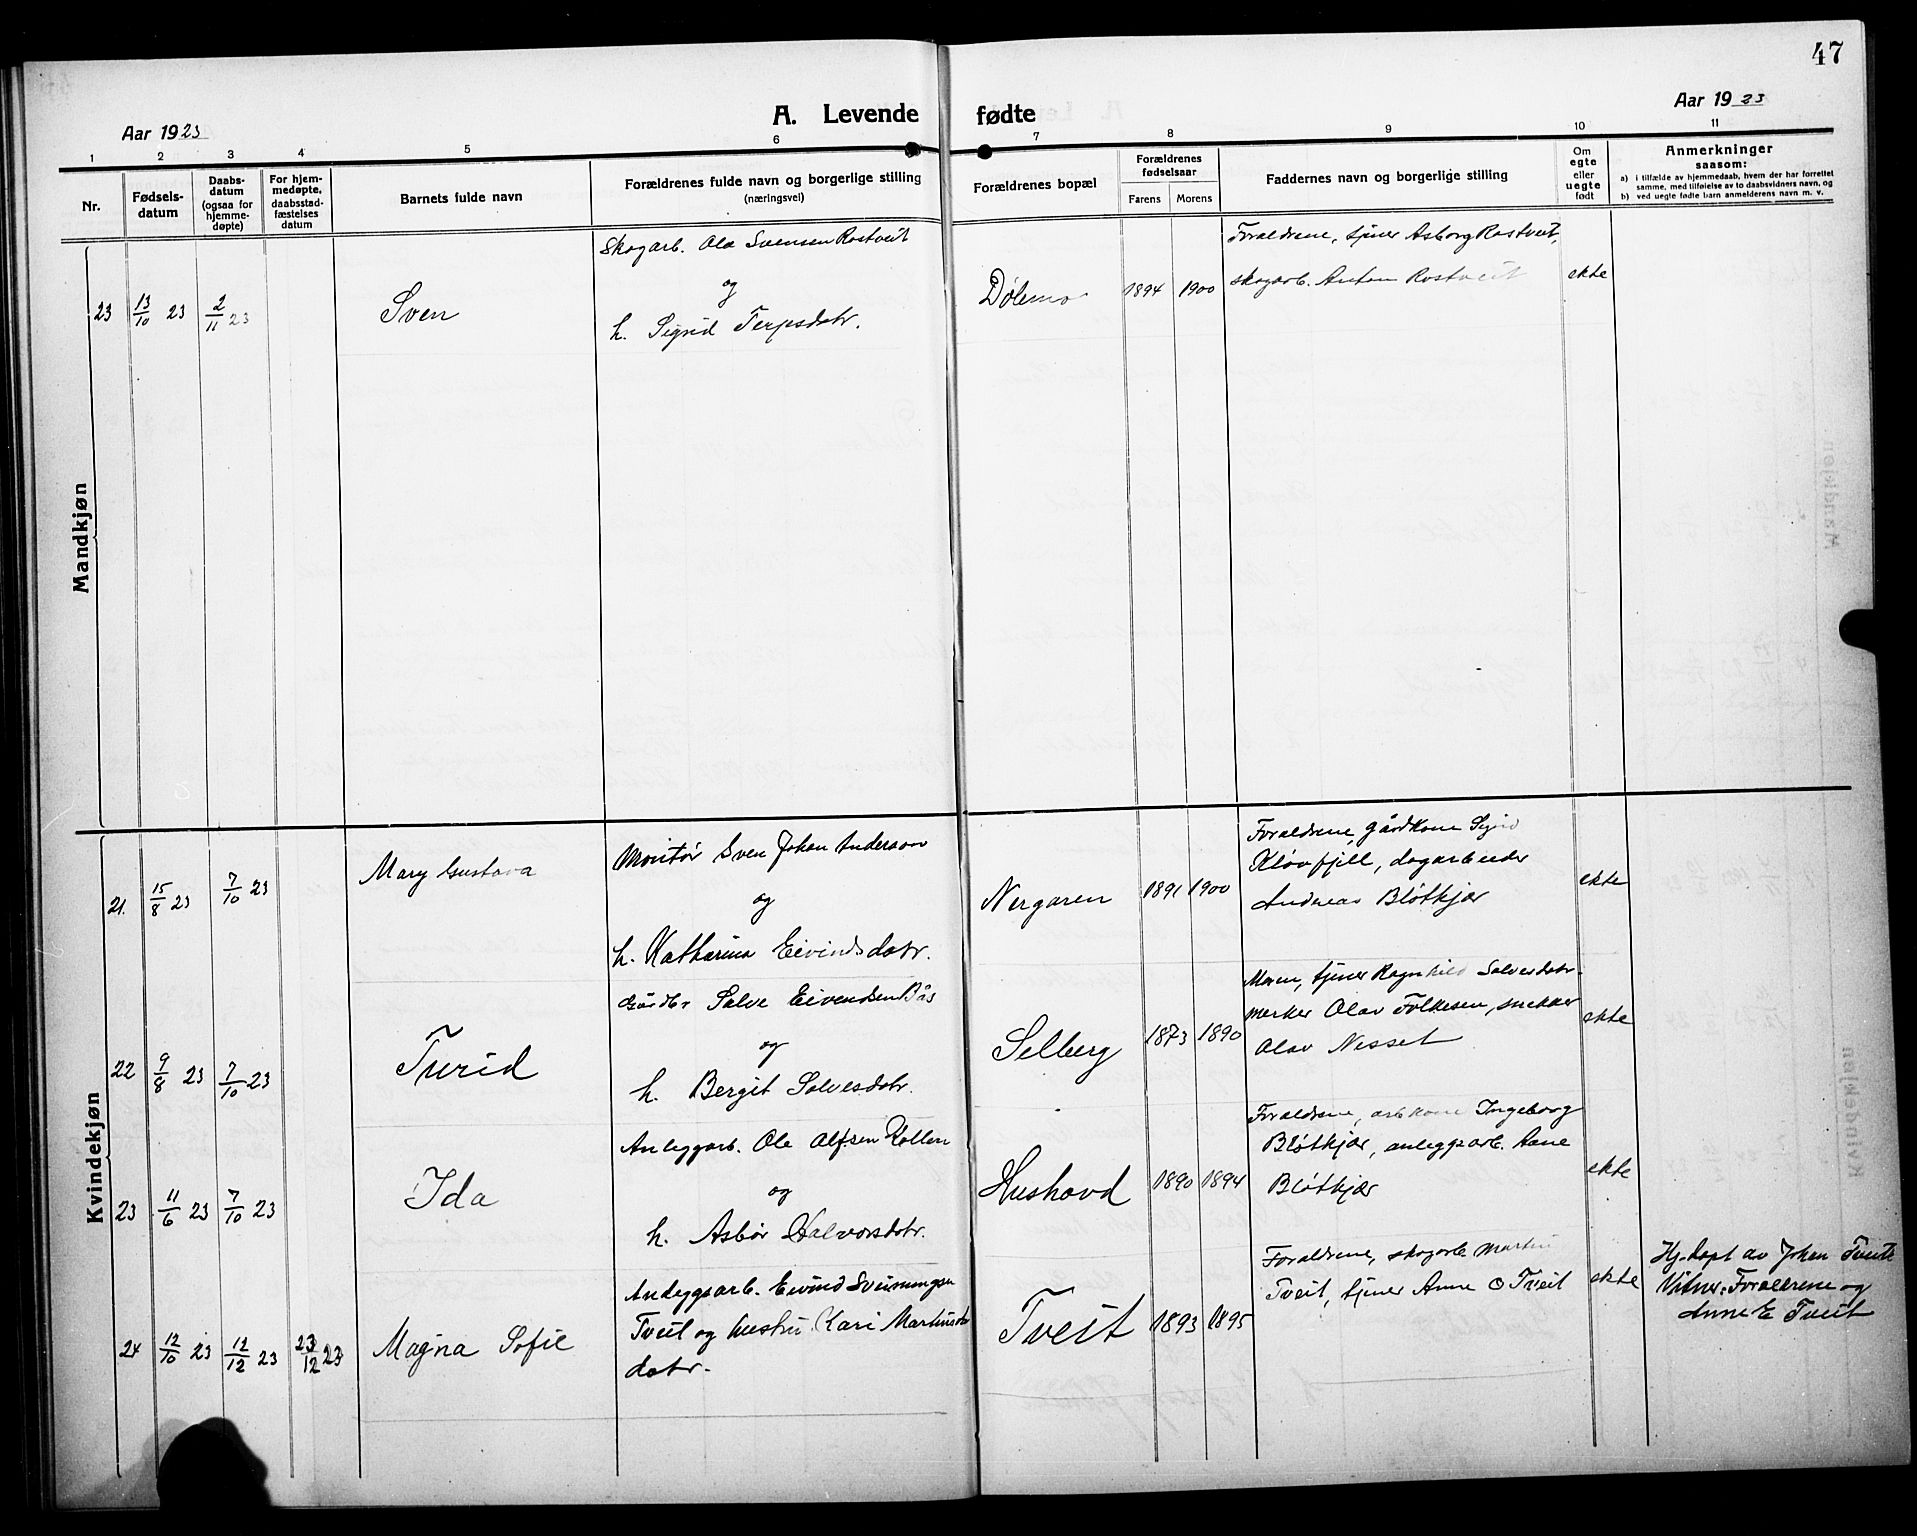 47
Aar 1923
A. Levende fødte
Aar 1923
1 2 3 4 5 6 7 8 9 10 11
Nr.
Fødsels-
datum
Daabs-
datum
(ogsaa for
hjemme-
døpte)
For hjem-
medøpte,
daabsstad-
fæstelses
datum
Barnets fulde navn
Forældrenes fulde navn og borgerlige stilling
(næringsvei)
Forældrenes bopæl
Forældrenes
fødselsaar
Farens Morens
Faddernes navn og borgerlige stilling
Om
egte
eller
uegte
født
Anmerkninger
saasom:
a) i tilfælde av hjemmedaab, hvem der har forrettet
samme, med tilføielse av to daabsvidners navn, og
b) ved uegte fødte barn anmelderens navn m. v.
Mandkjøn
23
13/10 23
2/11 23
Sven
Skogarb. Ola Svensen Rostveit
og
h. Sigrid Terjesdotr.
Dølemo
1894 1900
Foraldrene, tjener Asborg Rostveit,
skogarb. Anton Rostveit
ekte
Kvindekjøn
21.
15/8 23
7/10 23
Mary Gustava
Montör Sven Johan Anderson
og
h. Katharina Eivindsdotr.
Nergaren
1891 1900
Foraldrene, gårdkone Sigrid
Kløvfjell, dagarbeider
Andreas Bløtkjær
ekte
22
9/8 23
7/10 23
Turid
Gårdbr Salve Eivendsen Bås
og
h. Bergit Salvesdotr.
Selberg
1873 1890
Moren, tjener Ragnhild Salvesdotr.
merker Olav Folkesen, snekker
Olav Nesset
ekte
23
11/6 23
7/10 23
Ida
Anleggarb. Ole Olfsen Kollen
og
h. Asbør Halvorsdotr.
Hushovd
1890 1894
Foraldrene, arb.kone Ingeborg
Bløtkjær, anleggsarb. Aane
Bløtkjær
ekte
24
12/10 23
12/12 23
23/12 23
Magna Sofie
Anleggsarb. Eivind Sveinungsen
Tveit og hustru Kari Martins
dotr.
Tveit
1893 1895
Foraldrene, skogarb Martin
Tveit, tjener Anne O Tveit
ekte
Hj.døpt av Johan Tveit
Vitner: Foraldrene og
Anne E Tveit